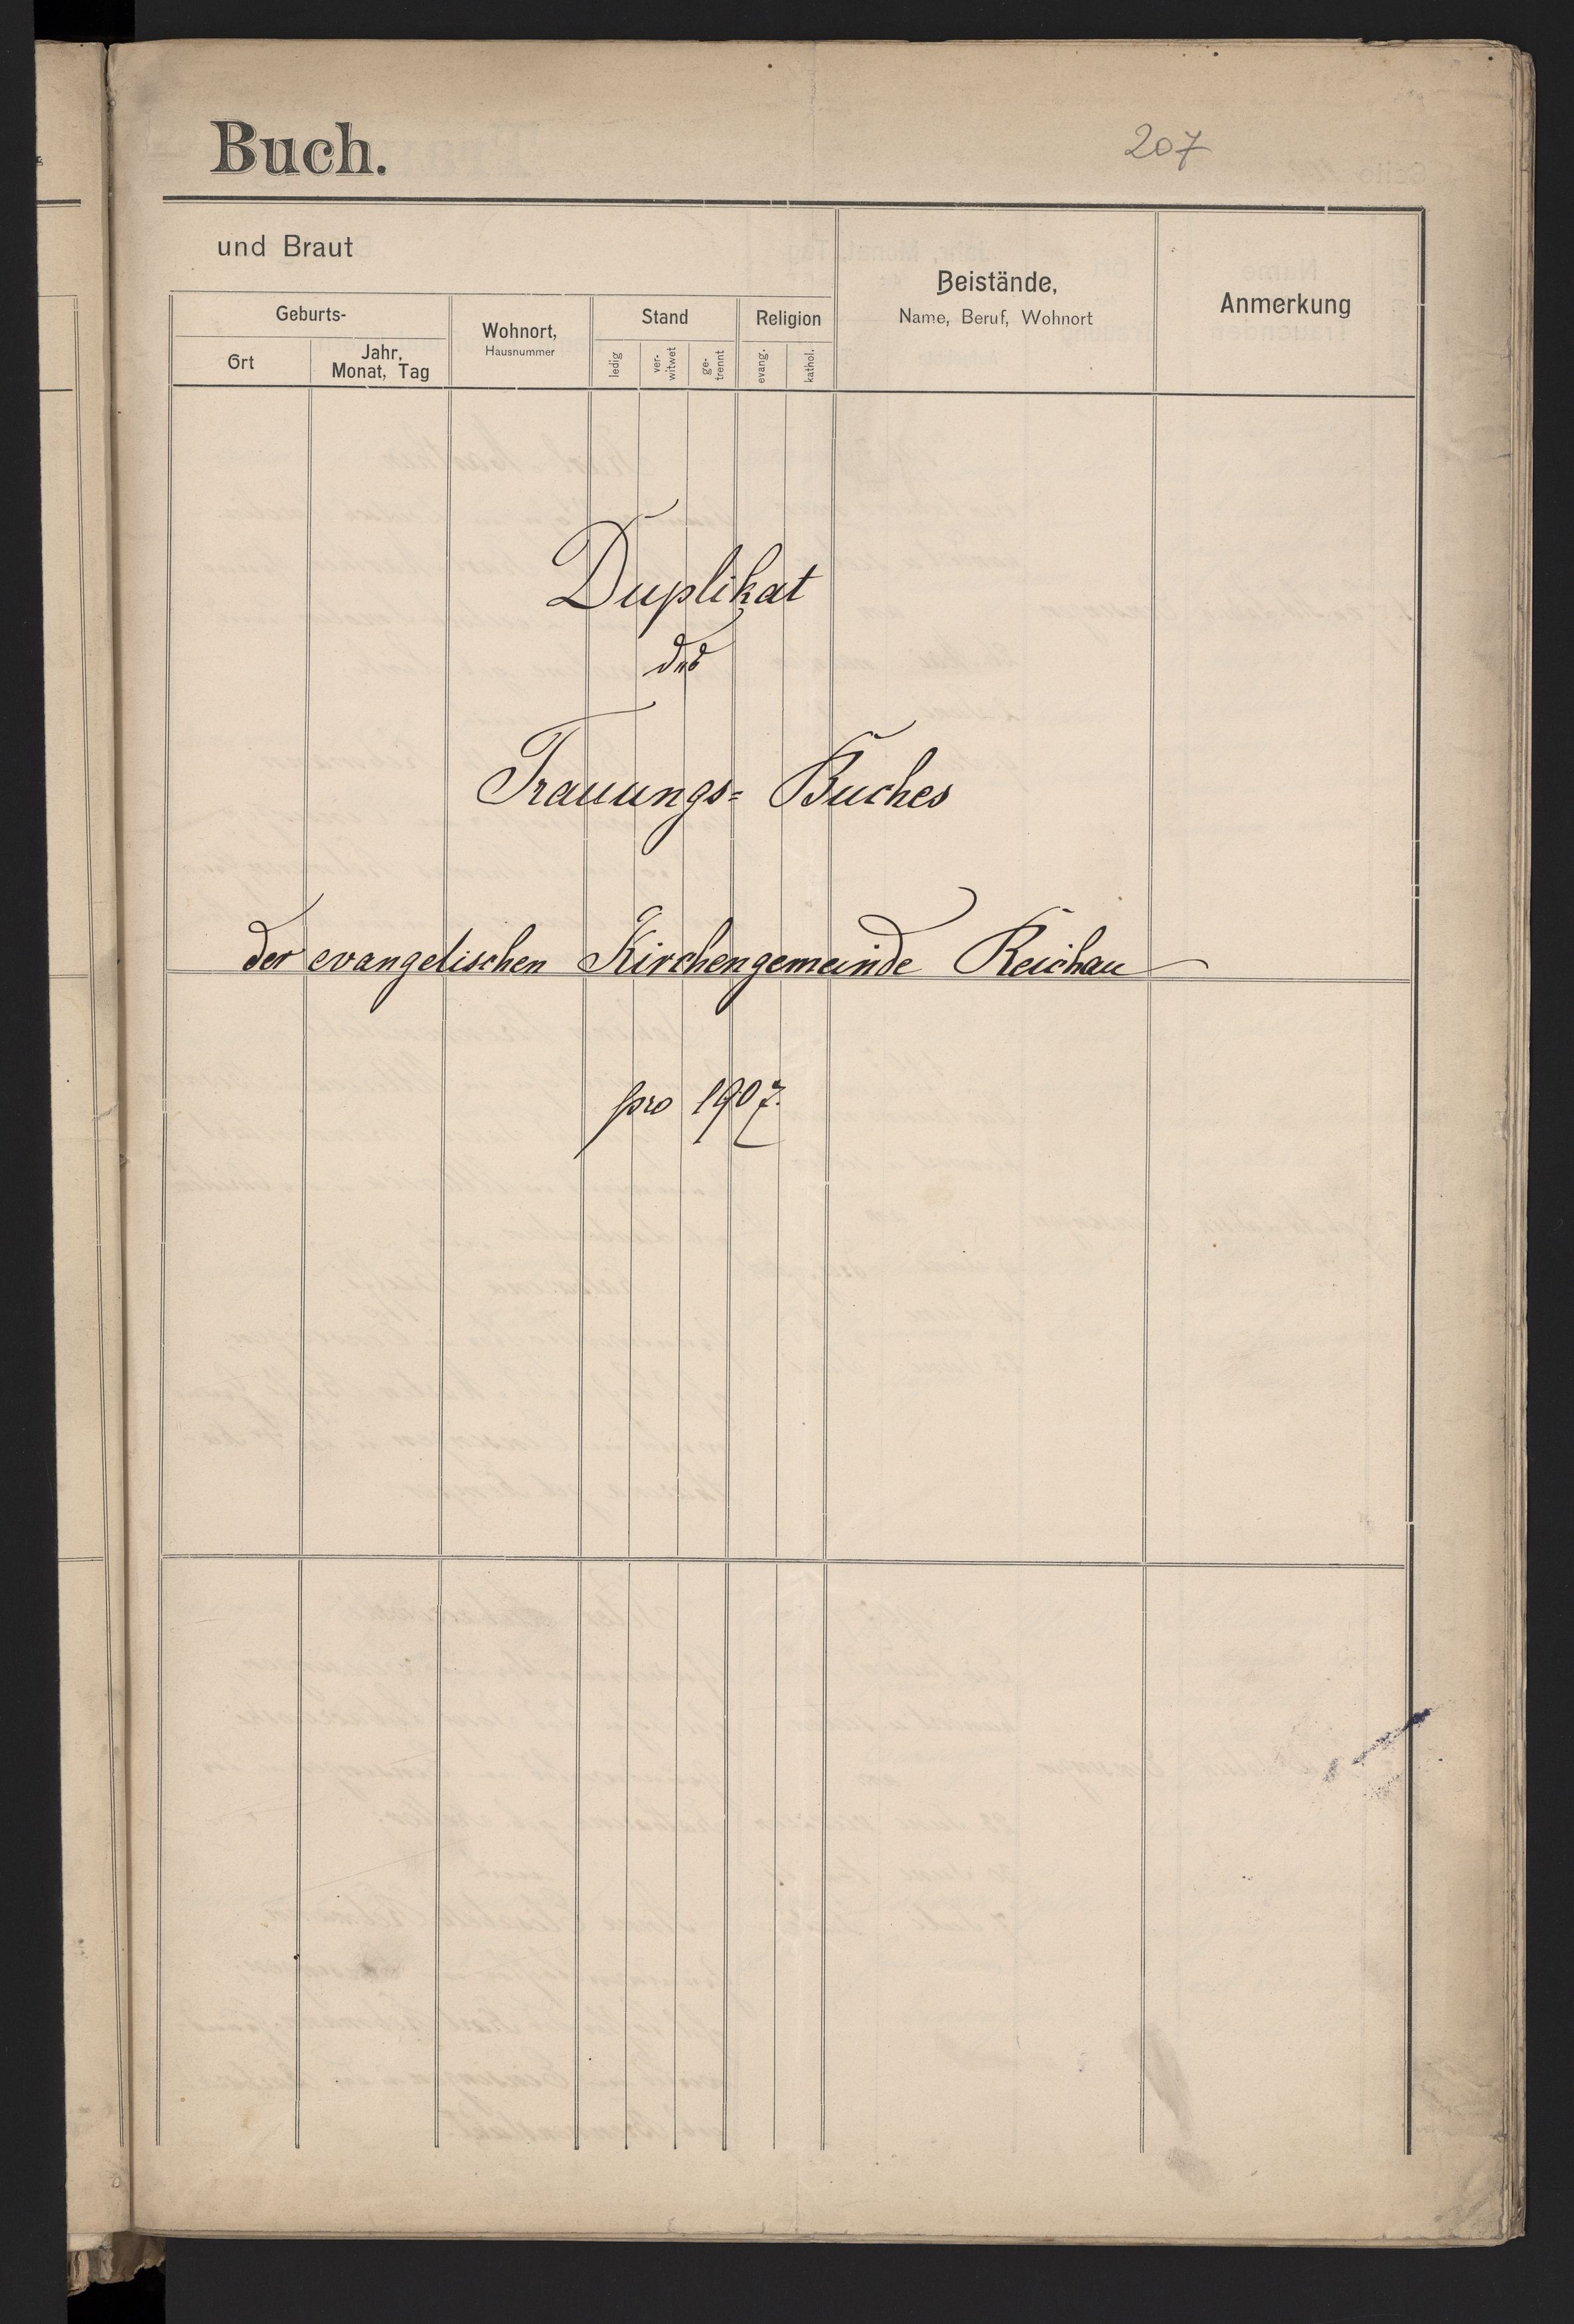 Buch.
207
und Braut
Beistände,
Name, Beruf, Wohnort
Anmerkung
Geburts-
Ort
Jahr,
Monat, Tag
Wohnort,
Hausnummer
Stand
ledig
ver-
witwet
ge-
trennt
Religion
evang.
kathol.
Duplikat
des
Trauungs= Buches
der evangelischen Kirchengemeinde Reichau
pro 1907.